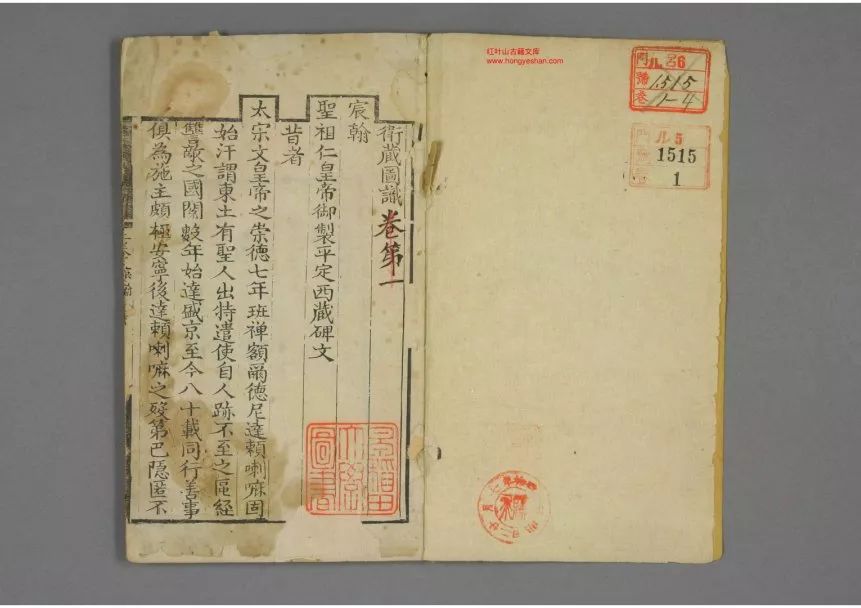 衛藏圖識卷第一
宸翰
聖祖仁皇帝御製平定西藏碑文
昔者
太宗文皇帝之崇德七年班禅額爾德尼達頼喇嘛固
始汗謂東土有聖人出特遣使自人跡不至之區経
讐敵之國閱數年始達盛京至今八十載同行善事
俱為施主頗極安寧後達頼喇嘛之殁第巴隐匿不
早稲田
大學
圖書
红叶山古籍文库
www.hongyeshan.com
門 ル 呂6
號 1515
卷 1-4
ル 5
1515
1